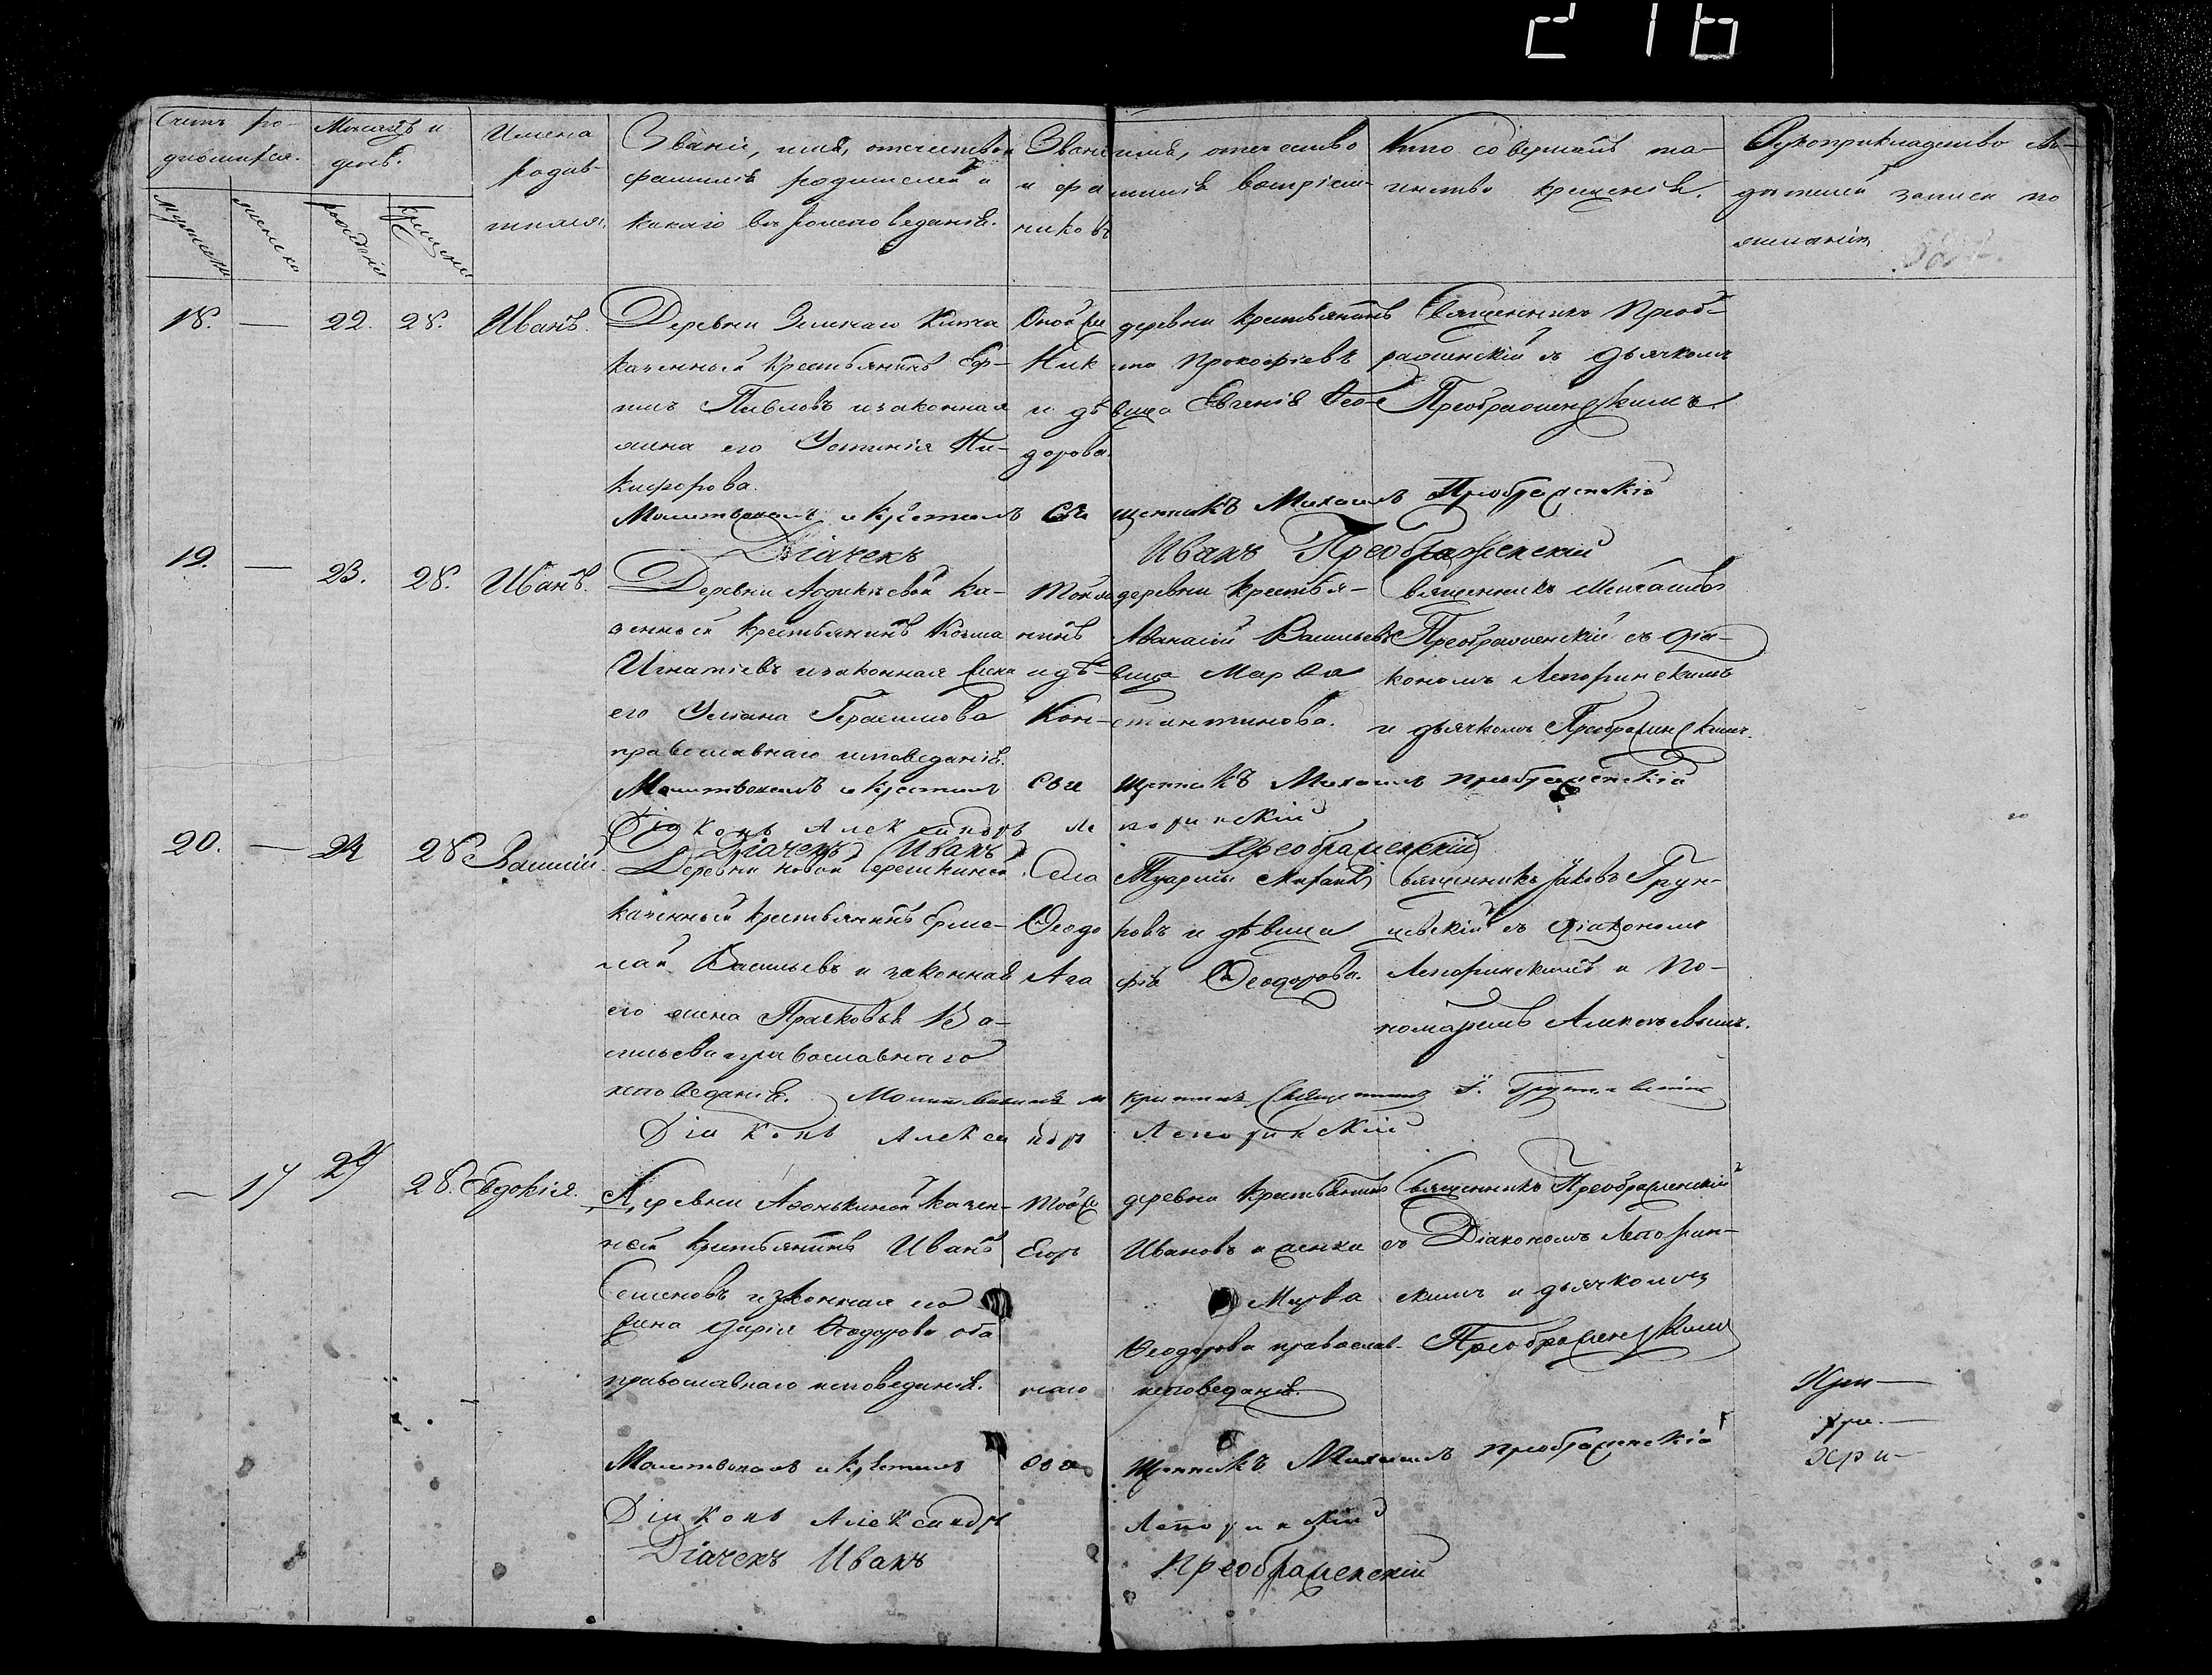 216
Счетъ ро-
дившихся.
Мужеска
женска
Месяцъ и
день.
рожденія
крещенія
Имена
родив-
шихся.
Званіе, имя, отечество и
фамилія родителей и
какаго вѣроисповеданія.
Званіе имя, отечество
и фамилія воспріем-
никовъ
Кто совершалъ та-
инство крещенія.
Рукоприкладство сви-
детелей записи по
желанію
18. — 22. 28. Иванъ.
Деревни Зеленаго Ключа
казенный крестьянинъ Еф-
имъ Павловъ и законная
жена его Устинія Ни-
кифорова.
Оной же деревни крестьянинъ
Никита Прокофіевъ
и дѣвица Евгенія Ѳео-
дорова.
Священникъ Преоб-
раженскій съ дьячкомъ
Преображенскимъ.
Молитвовалъ и крестилъ Священникъ Михаилъ Преображенскій
Діачекъ Иванъ Преображенскій
19. — 23. 28. Иванъ.
Деревни ка-
зенный крестьянинъ Козма
Игнатіевъ и законная жена
его Уліана Герасимова
православнаго исповеданія.
Той же деревни крестья-
нинъ Аѳанасій Васильевъ
и дѣвица Марѳа
Константинова.
Священникъ Михаилъ
Преображенскій съ діа-
кономъ Лепоринскимъ
и дьячкомъ Преображенскимъ.
Молитвовалъ и крестилъ Священникъ Михаилъ Преображенскій
Діаконъ Александръ Лепоринскій
Діачекъ Иванъ Преображенскій
20. — 24 28 Василій.
Деревни Новой
казенный крестьянинъ Ермо-
лай Васильевъ и законная
его жена Прасковья Ва-
сильева православнаго
исповеданія.
Села Туармы
Ѳеодоровъ и дѣвица
Агафія Ѳеодорова.
Священникъ Іаковъ
съ діакономъ
Лепоринскимъ и по-
номаремъ Алексѣевымъ.
Молитвовалъ и крестилъ Священникъ І.
Діаконъ Александръ Лепоринскій
— 17 27 28. Евдокія.
Деревни Афонькиной казен-
ной крестьянинъ Иванъ
Семеновъ и законная его
жена Дарія Ѳеодорова оба
православнаго исповеданія.
Той же деревни крестьянинъ
Егоръ Ивановъ и женка
Марѳа
Ѳеодорова православ-
наго исповеданія.
Священникъ Преображенскій
съ Діакономъ Лепорин-
скимъ и дьячкомъ
Преображенскимъ
Молитвовалъ и крестилъ Священникъ Михаилъ Преображенскій
Діаконъ Александръ Лепоринскій
Діачекъ Иванъ Преображенскій